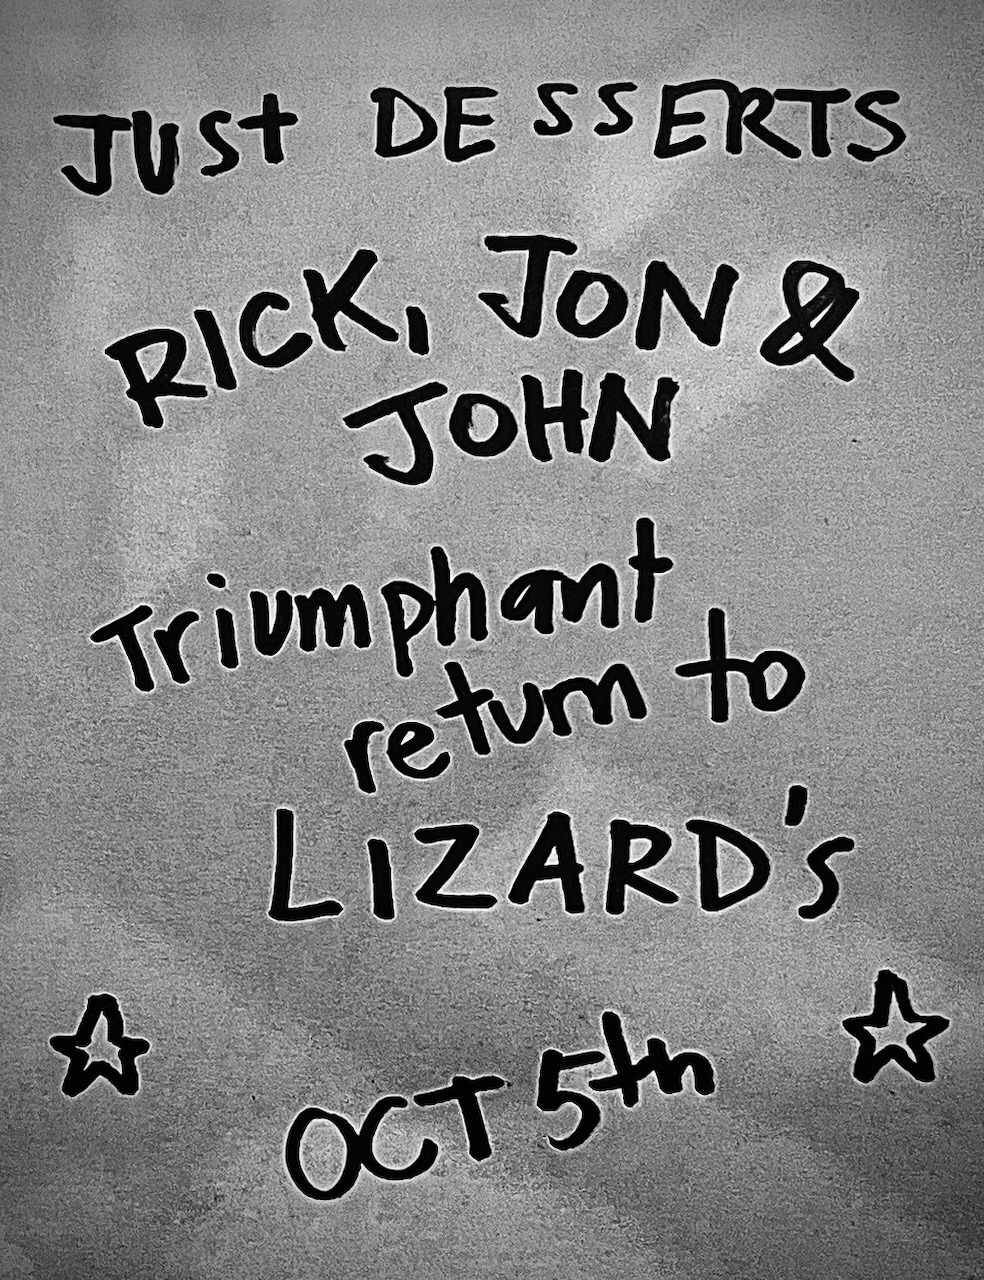 JUSt DESSERTS
RICK, JON &
JOHN
Triumphant
return to
LIZARD's
OCT 5th